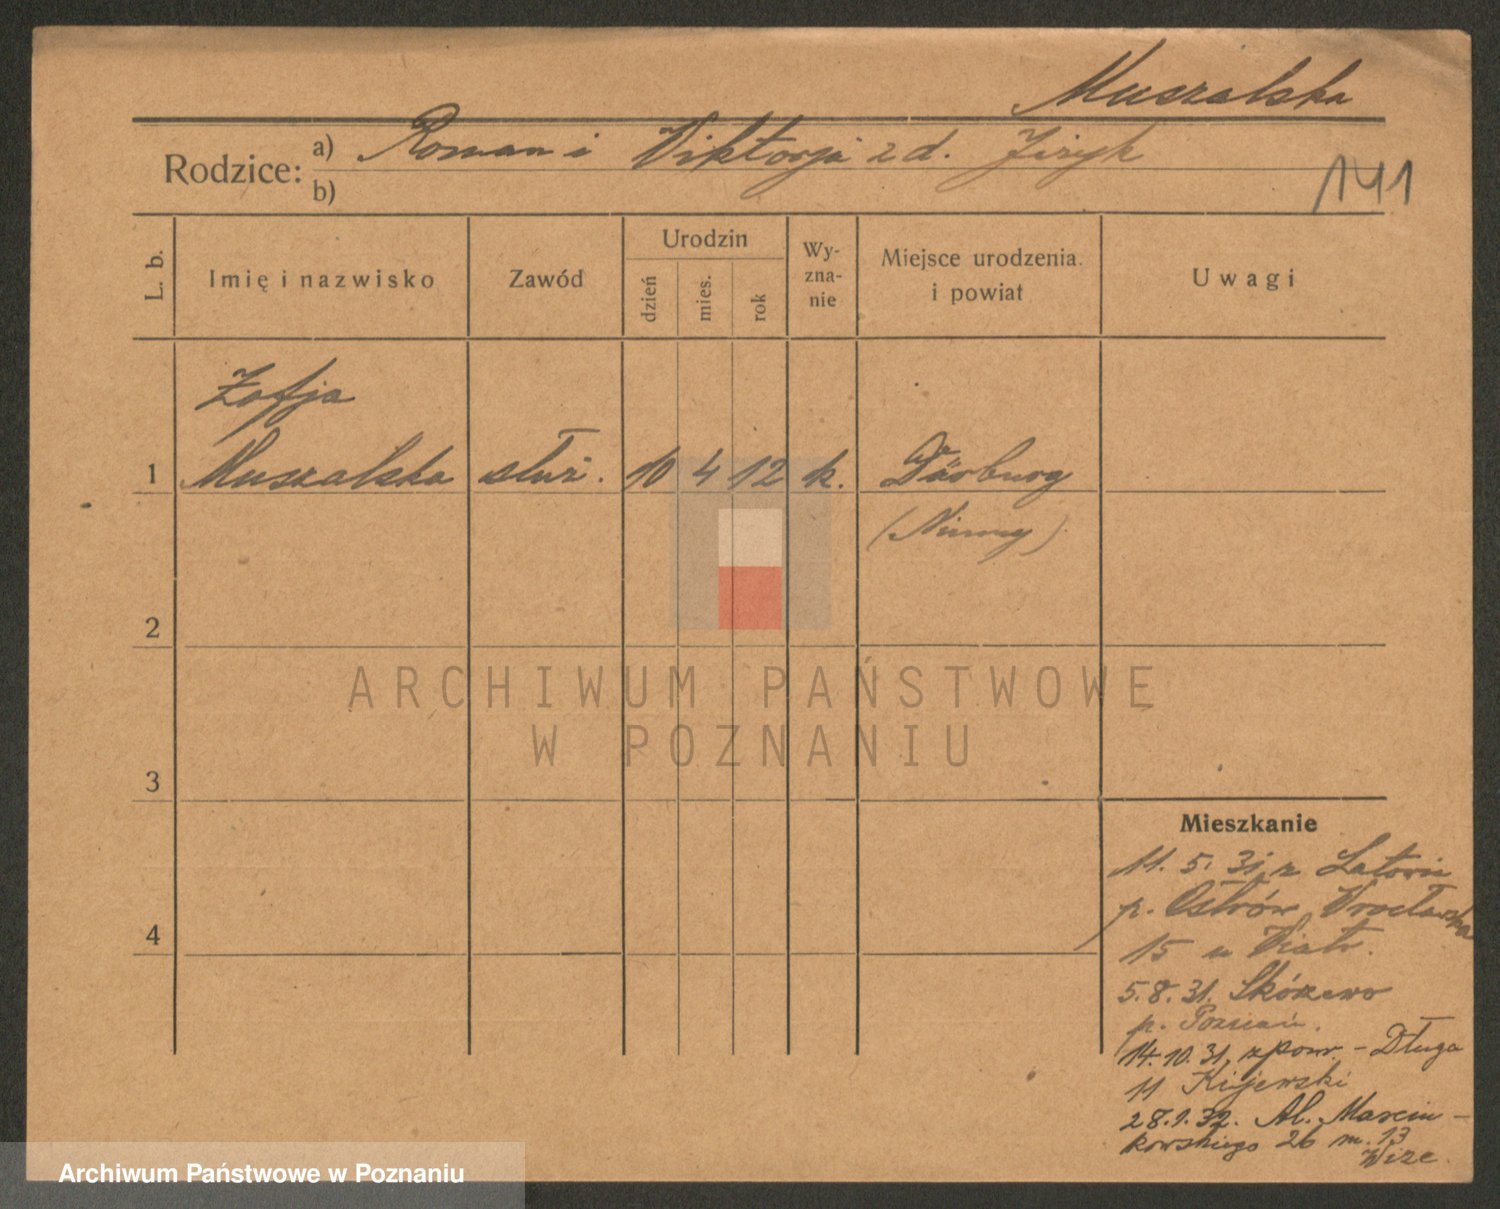 Muszalska
Rodzice: a) Roman i Wiktorja z d. Jizyk
b)
141
L. b.
Imię i nazwisko
Zawód
Urodzin
dzień
mies.
rok
Wy-
zna-
nie
Miejsce urodzenia
i powiat
Uwagi
Zofja
1 Muszalska służ. 10 4 12 k.
(Niemcy)
2
3
4
Mieszkanie
11. 5. 31. z
p. Ostrów Wrocławska
15 u Wiatr.
5. 8. 31. Skórzewo
p. Poznań.
14. 10. 31. z pow. - Długa
11 Kijewski
28. 1. 32. Al. Marcin-
kowskiego 26 m. 13
Wize.
ARCHIWUM PAŃSTWOWE
W POZNANIU
Archiwum Państwowe w Poznaniu